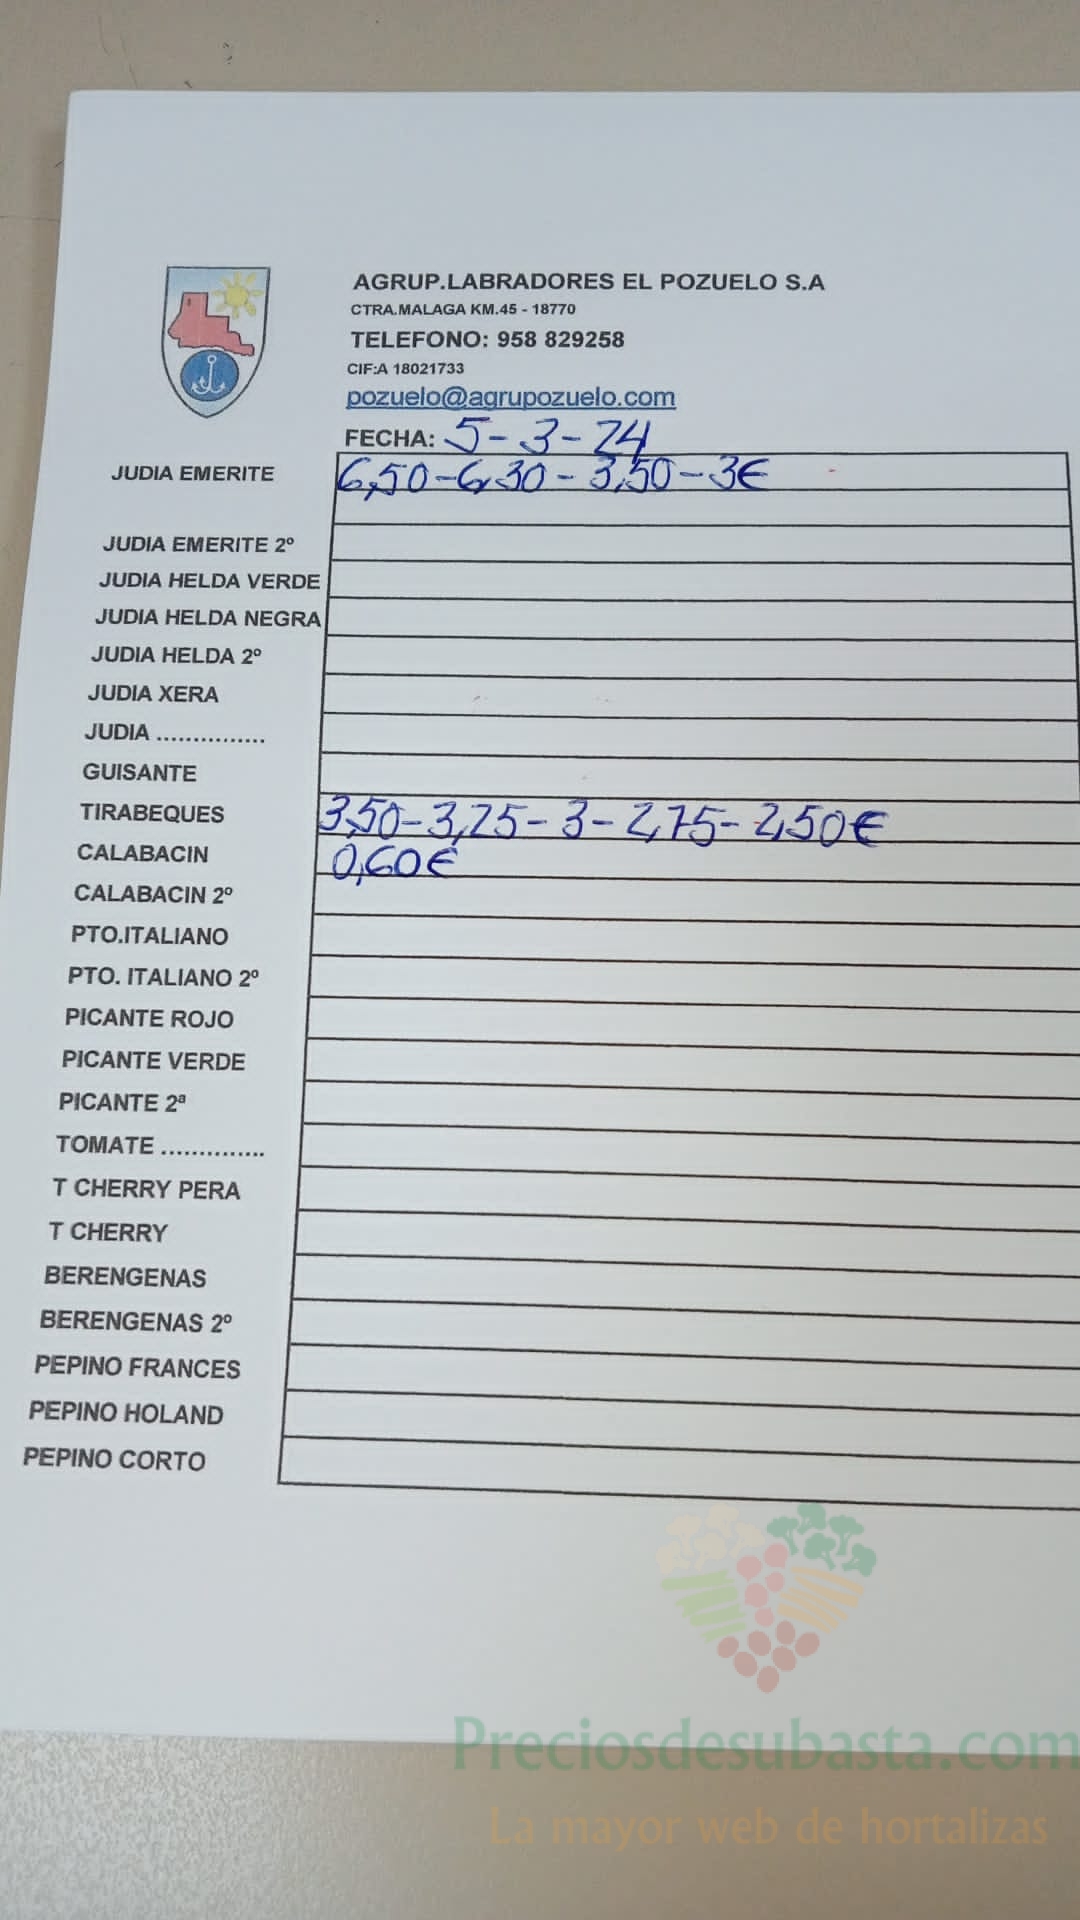 AGRUP.LABRADORES EL POZUELO S.A
CTRA.MALAGA KM.45 - 18770
TELEFONO: 958 829258
CIF:A 18021733
pozuelo@agrupozuelo.com
FECHA: 5-3-24
JUDIA EMERITE 6,50-6,30-3,50-3€
JUDIA EMERITE 2º
JUDIA HELDA VERDE
JUDIA HELDA NEGRA
JUDIA HELDA 2º
JUDIA XERA
JUDIA ...............
GUISANTE
TIRABEQUES 3,50-3,25-3-2,75-2,50€
CALABACIN 0,60€
CALABACIN 2º
PTO.ITALIANO
PTO. ITALIANO 2º
PICANTE ROJO
PICANTE VERDE
PICANTE 2ª
TOMATE ..............
T CHERRY PERA
T CHERRY
BERENGENAS
BERENGENAS 2º
PEPINO FRANCES
PEPINO HOLAND
PEPINO CORTO
Preciosdesubasta.com
La mayor web de hortalizas